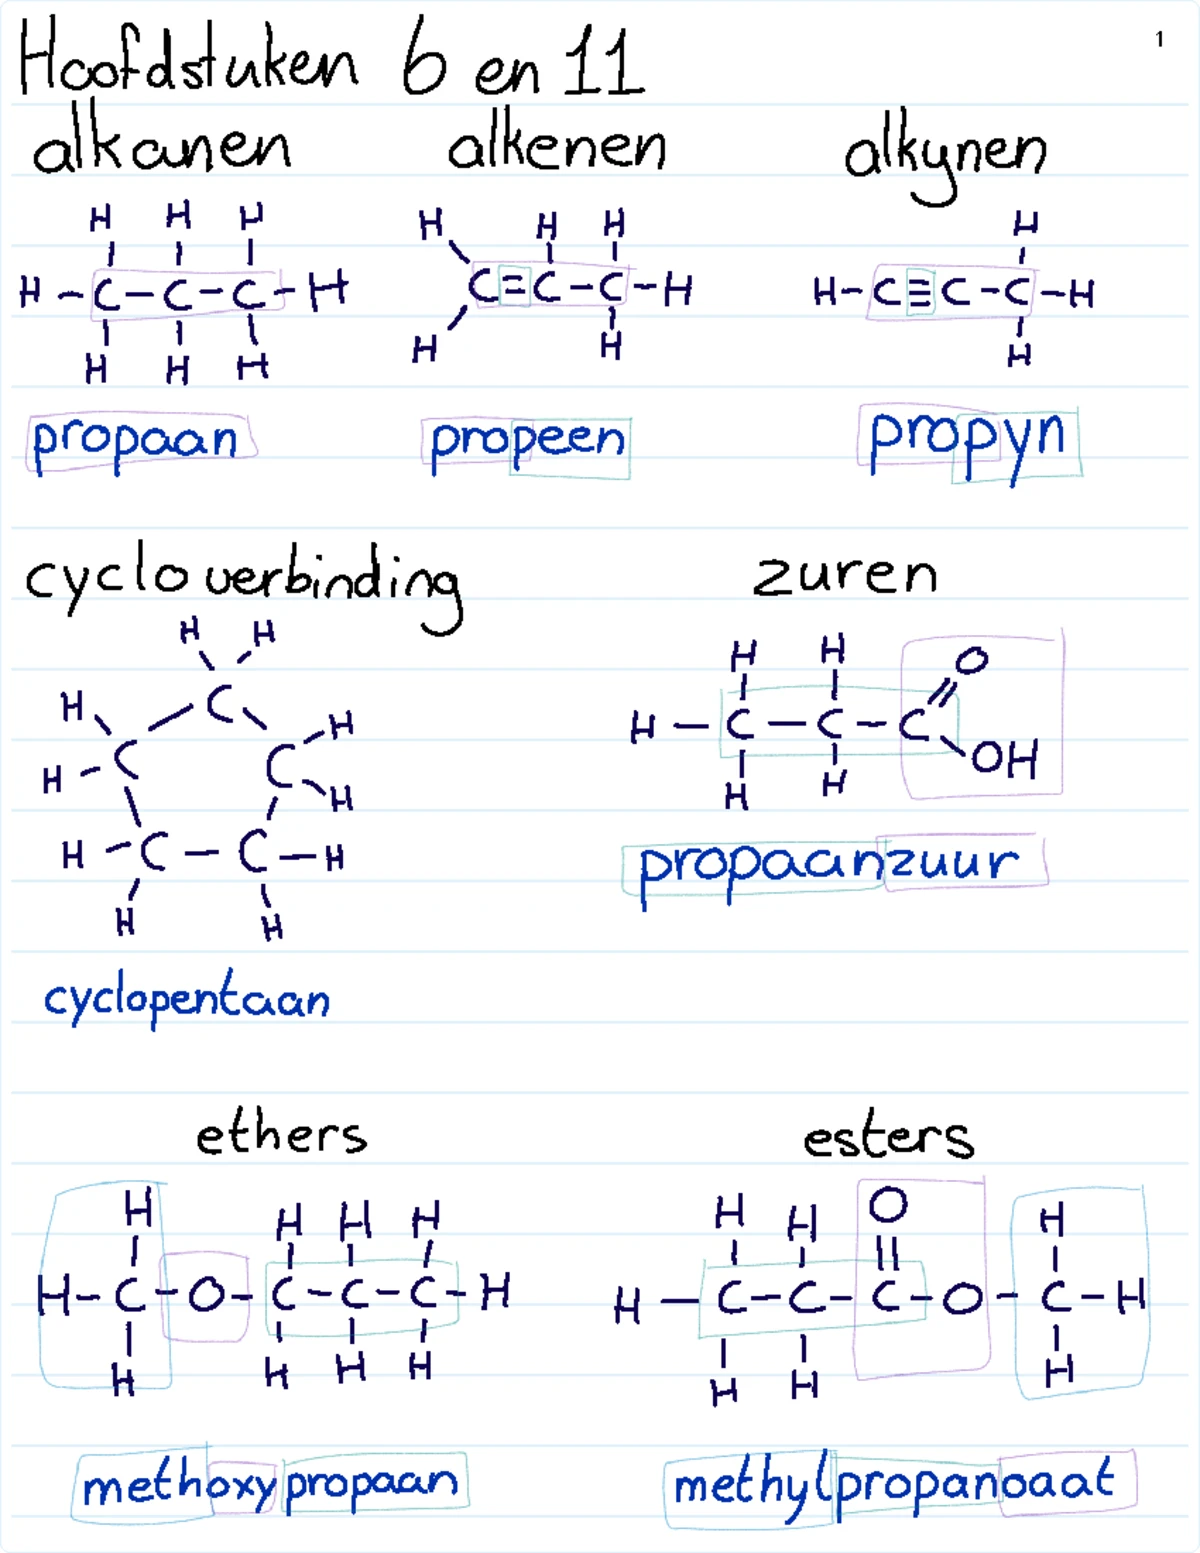 Hoofdstuken 6 en 11
1
alkanen alkenen alkynen
H H H H H H H
H - C - C - C - H C = C - C - H H - C ≡ C - C - H
H H H H H H
propaan propeen propyn
cyclo verbinding zuren
H H
H H O
H C H
H - C - C - C
H C C OH
H H H H
H - C - C - H
H H
propaanzuur
cyclopentaan
ethers esters
H H H H H H O H
H - C - O - C - C - C - H H - C - C - C - O - C - H
H H H H H H H
methoxypropaan methylpropanoaat